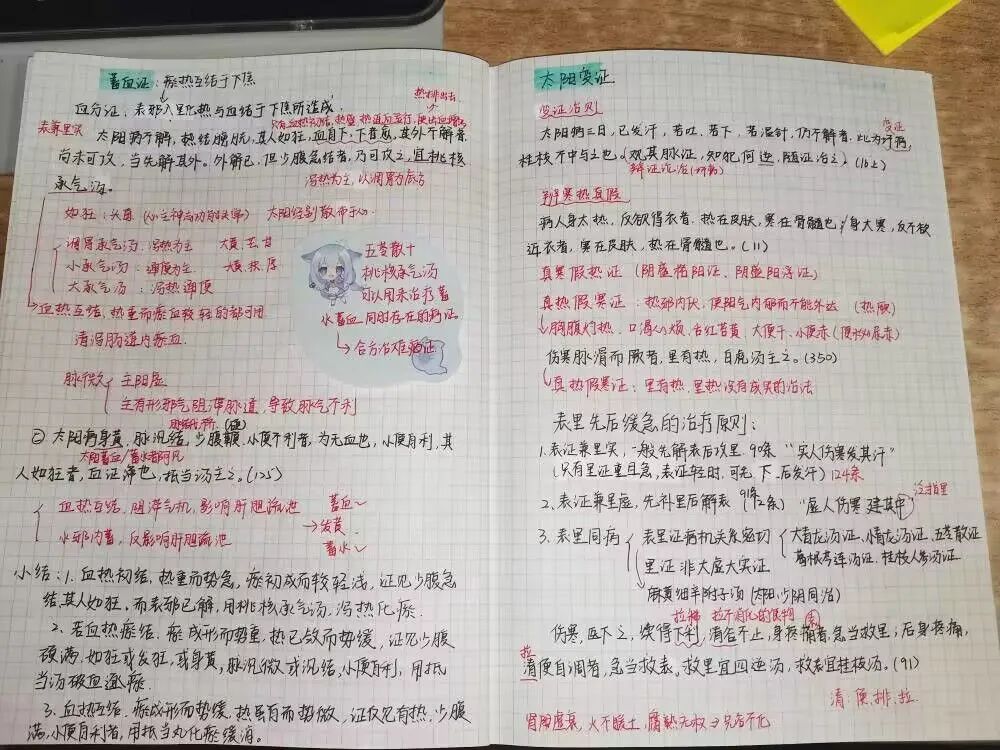 蓄血证：瘀热互结于下焦
血分证：表邪入里化热与血结于下焦所造成.
热排出去
表兼里实
太阳病不解，热结膀胱，其人如狂，血自下，下者愈。其外不解者，
尚未可攻，当先解其外。外解已，但少腹急结者，乃可攻之，宜桃核
承气汤。
泻热为主，以调胃为底方
如狂：状态
太阳经别散布于心
调胃承气汤：泻热为主 大黄.芒.甘
小承气汤：通便为主.
大承气汤：泻热通便
血热互结，热重而瘀血较轻的都可用
清泻肠道内瘀血.
五苓散+
桃核承气汤
可以用来治疗蓄
水蓄血同时存在的病证
合方治难治证
脉微 主阳虚
主有形邪气阻滞脉道，导致脉气不利
② 太阳病身黄，脉沉结，少腹鞕，小便不利者，为无血也，小便自利，其
(硬)
人如狂者，血证谛也，抵当汤主之。(125)
血热互结，阻滞气机，影响肝胆疏泄 蓄血
→发黄
水邪内蓄，反影响肝胆疏泄 蓄水
小结：1. 血热初结，热重而势急，瘀初成而较轻浅，证见少腹急
结，其人如狂，而表邪已解，用桃核承气汤，泻热化瘀.
2. 若血热瘀结，瘀成形而势重，热已敛而势缓，证见少腹
硬满，如狂或发狂，或身黄，脉沉微或沉结，小便自利，用抵
当汤破血逐瘀.
3. 血热互结，瘀成形而势缓，热虽有而势微，证仅见有热，少腹
满，小便自利者，用抵当丸化瘀缓消。
太阳变证
变证治则
太阳病三日，已发汗，若吐，若下，若温针，仍不解者，此为坏病，
变证
桂枝不中与之也。观其脉证，知犯何逆，随证治之。(16上)
辨证论治
辨寒热真假
病人身太热，反欲得衣者，热在皮肤，寒在骨髓也；身大寒，反不欲
近衣者，寒在皮肤，热在骨髓也。(11)
真寒假热证（阴盛格阳证、阴盛阳浮证）
真热假寒证：热邪内伏，使阳气内郁而不能外达 (热厥)
胸腹灼热，口渴心烦，舌红苔黄，大便干，小便赤
伤寒脉滑而厥者，里有热，白虎汤主之。(350)
真热假寒证：里有热，里热没有成实的治法
表里先后缓急的治疗原则：
1. 表证兼里实，一般先解表后攻里 90条 “实人伤寒发其汗”
(只有里证重且急，表证轻时，可先下，后发汗) 124条
2. 表证兼里虚，先补里后解表 “虚人伤寒建其中”
3. 表里同病 表里证病机关系密切 大青龙汤证、小青龙汤证、五苓散证
葛根芩连汤证、桂枝人参汤证.
里证非大虚大实证
麻黄细辛附子汤 (太阳少阴同治)
拉稀 拉不消化的食物
伤寒，医下之，续得下利，清谷不止，身疼痛者，急当救里；后身疼痛，
拉
清便自调者，急当救表。救里宜四逆汤，救表宜桂枝汤。(91)
清.便.排.拉
肾阳虚衰，火不暖土，腐熟无权→完谷不化